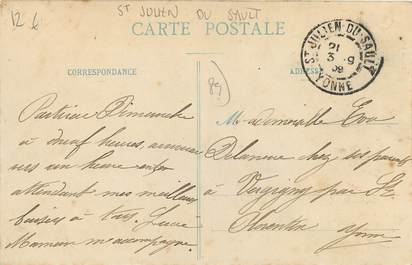 12 €
ST JULIEN DU SAULT
CARTE POSTALE
CORRESPONDANCE
ADRESSE
ST JULIEN-DU-SAULT
21
3 - 9
09
YONNE
89
Partirai Dimanche
à neuf heures, 
vers un heure enfin
attendant mes meilleurs
baisers à tous. Lucie
Maman m'accompagne.
Mademoiselle Eva
Delanoue chez ses parents
à Vergigny par St
Florentin
Yonne